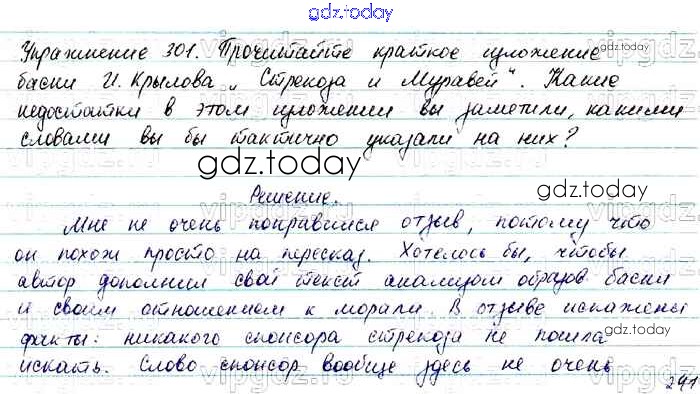 gdz.today
Упражнение 301. Прочитайте краткое изложение
басни И. Крылова „Стрекоза и Муравей". Какие
недостатки в этом изложении вы заметили, какими
словами вы бы тактично указали на них?
gdz.today
Решение.
gdz.today
Мне не очень понравился отзыв, потому что
он похож просто на пересказ. Хотелось бы, чтобы
автор дополнил свой текст анализом образов басни
и своим отношением к морали. В отзыве искажены
gdz.today
факты: никакого спонсора стрекоза не пошла
искать. Слово спонсор вообще здесь не очень
291